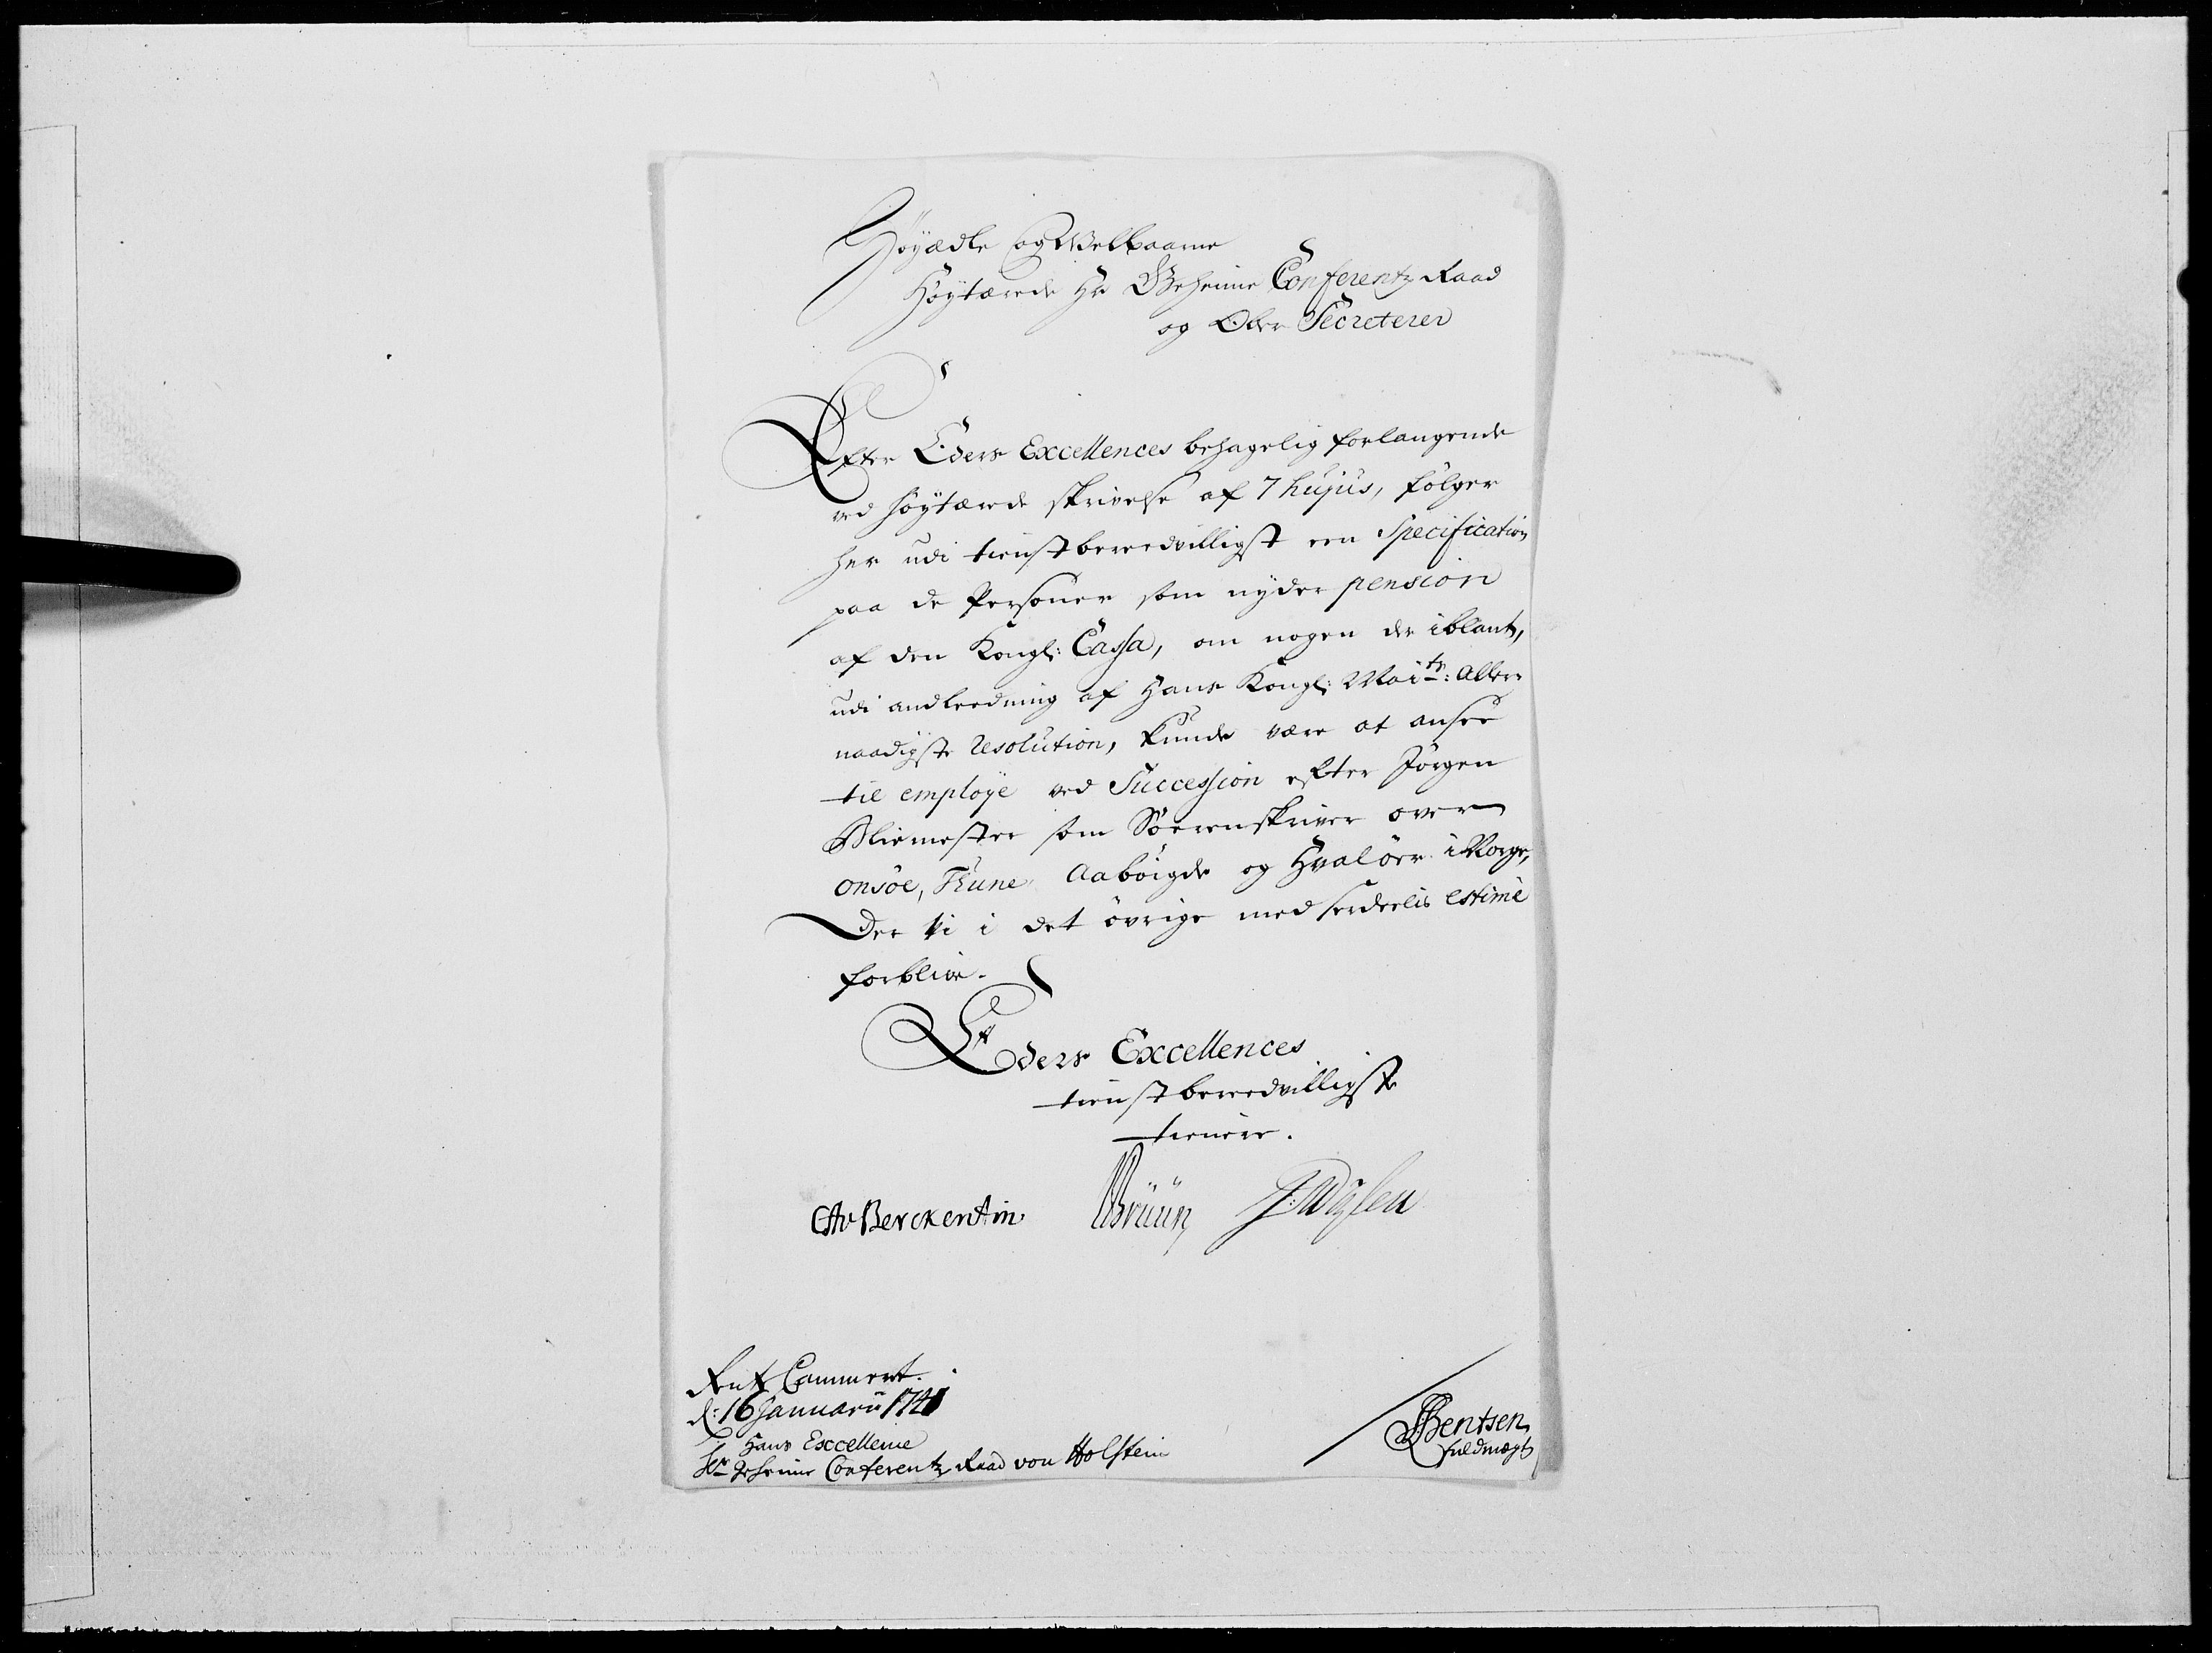 Høyædle og Welbaarne
Høytærede Hr Geheime Conferentz Raad
og Ober Secreterer
Efter Eders Excellences behagelig forlangende
ved høytærede skrivelse af 7 hujus, følger
her udi tienstbereedvilligst een Specification
paa de Personer som nyder pension
af den Kongl: Cassa, om nogen der iblant,
udi andleedning af Hans Kongl: Maits: Aller-
naadigste resolution, kunde være at ansee
til employe ved Succession efter Jørgen
som Sorenskriver over
onsøe, Thune Aabøigde og Hvaløer i Norge,
Der vi i det øvrige med serdeelis estime
forblive.
Eders Excellences
tienstbereedvilligste
tienere.
CAv Berckentin Bruun
Rente Cammeret.
d: 16 Januarii 1741
Hans Excellence
Hr Geheime Conferentz Raad von Holstein
Bentsen
fuldmægt